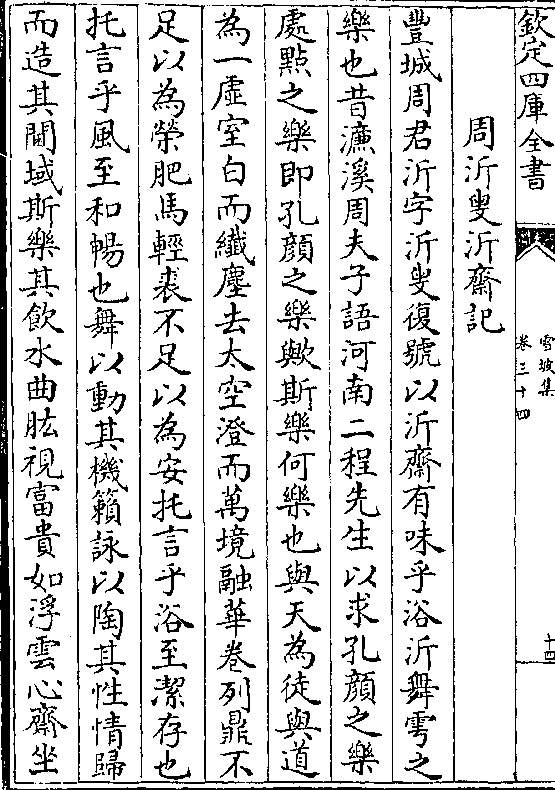 欽定四庫全書
雪坡集
卷三十四
十四
周沂叟沂齋記
豐城周君沂字沂叟復號以沂齋有味乎浴沂舞雩之
樂也昔濂溪周夫子語河南二程先生以求孔顔之樂
處點之樂即孔顔之樂歟斯樂何樂也與天為徒與道
為一虛室白而纖塵去太空澄而萬境融華卷列鼎不
足以為榮肥馬輕裘不足以為安托言乎浴至潔存也
托言乎風至和暢也舞以動其機籟詠以陶其性情歸
而造其閫域斯樂其飲水曲肱視富貴如浮雲心齋坐